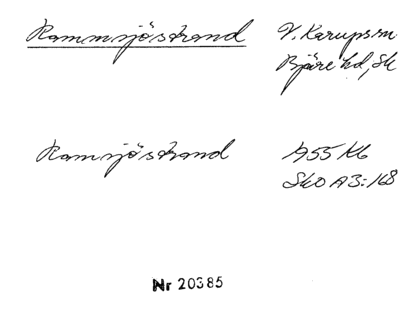 Rammsjöstrand V. Karups sn
Bjäre hd, Sk
Ramsjöstrand 1955 Kb
SkO A3:168
Nr 20385